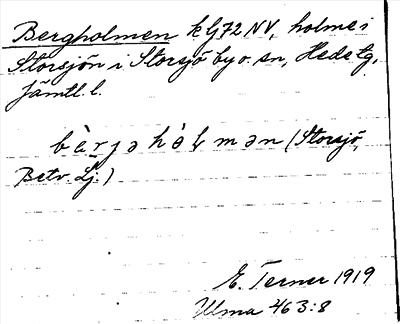 Bergholmen k lj 72 NV, holme i
Storsjön i Storsjö by o. sn, Hede tg,
Jämtl. l.
bèrjəhòlmən (Storsjö,
Betv. Lj.)
E. Terner 1919
Ulma 463:8